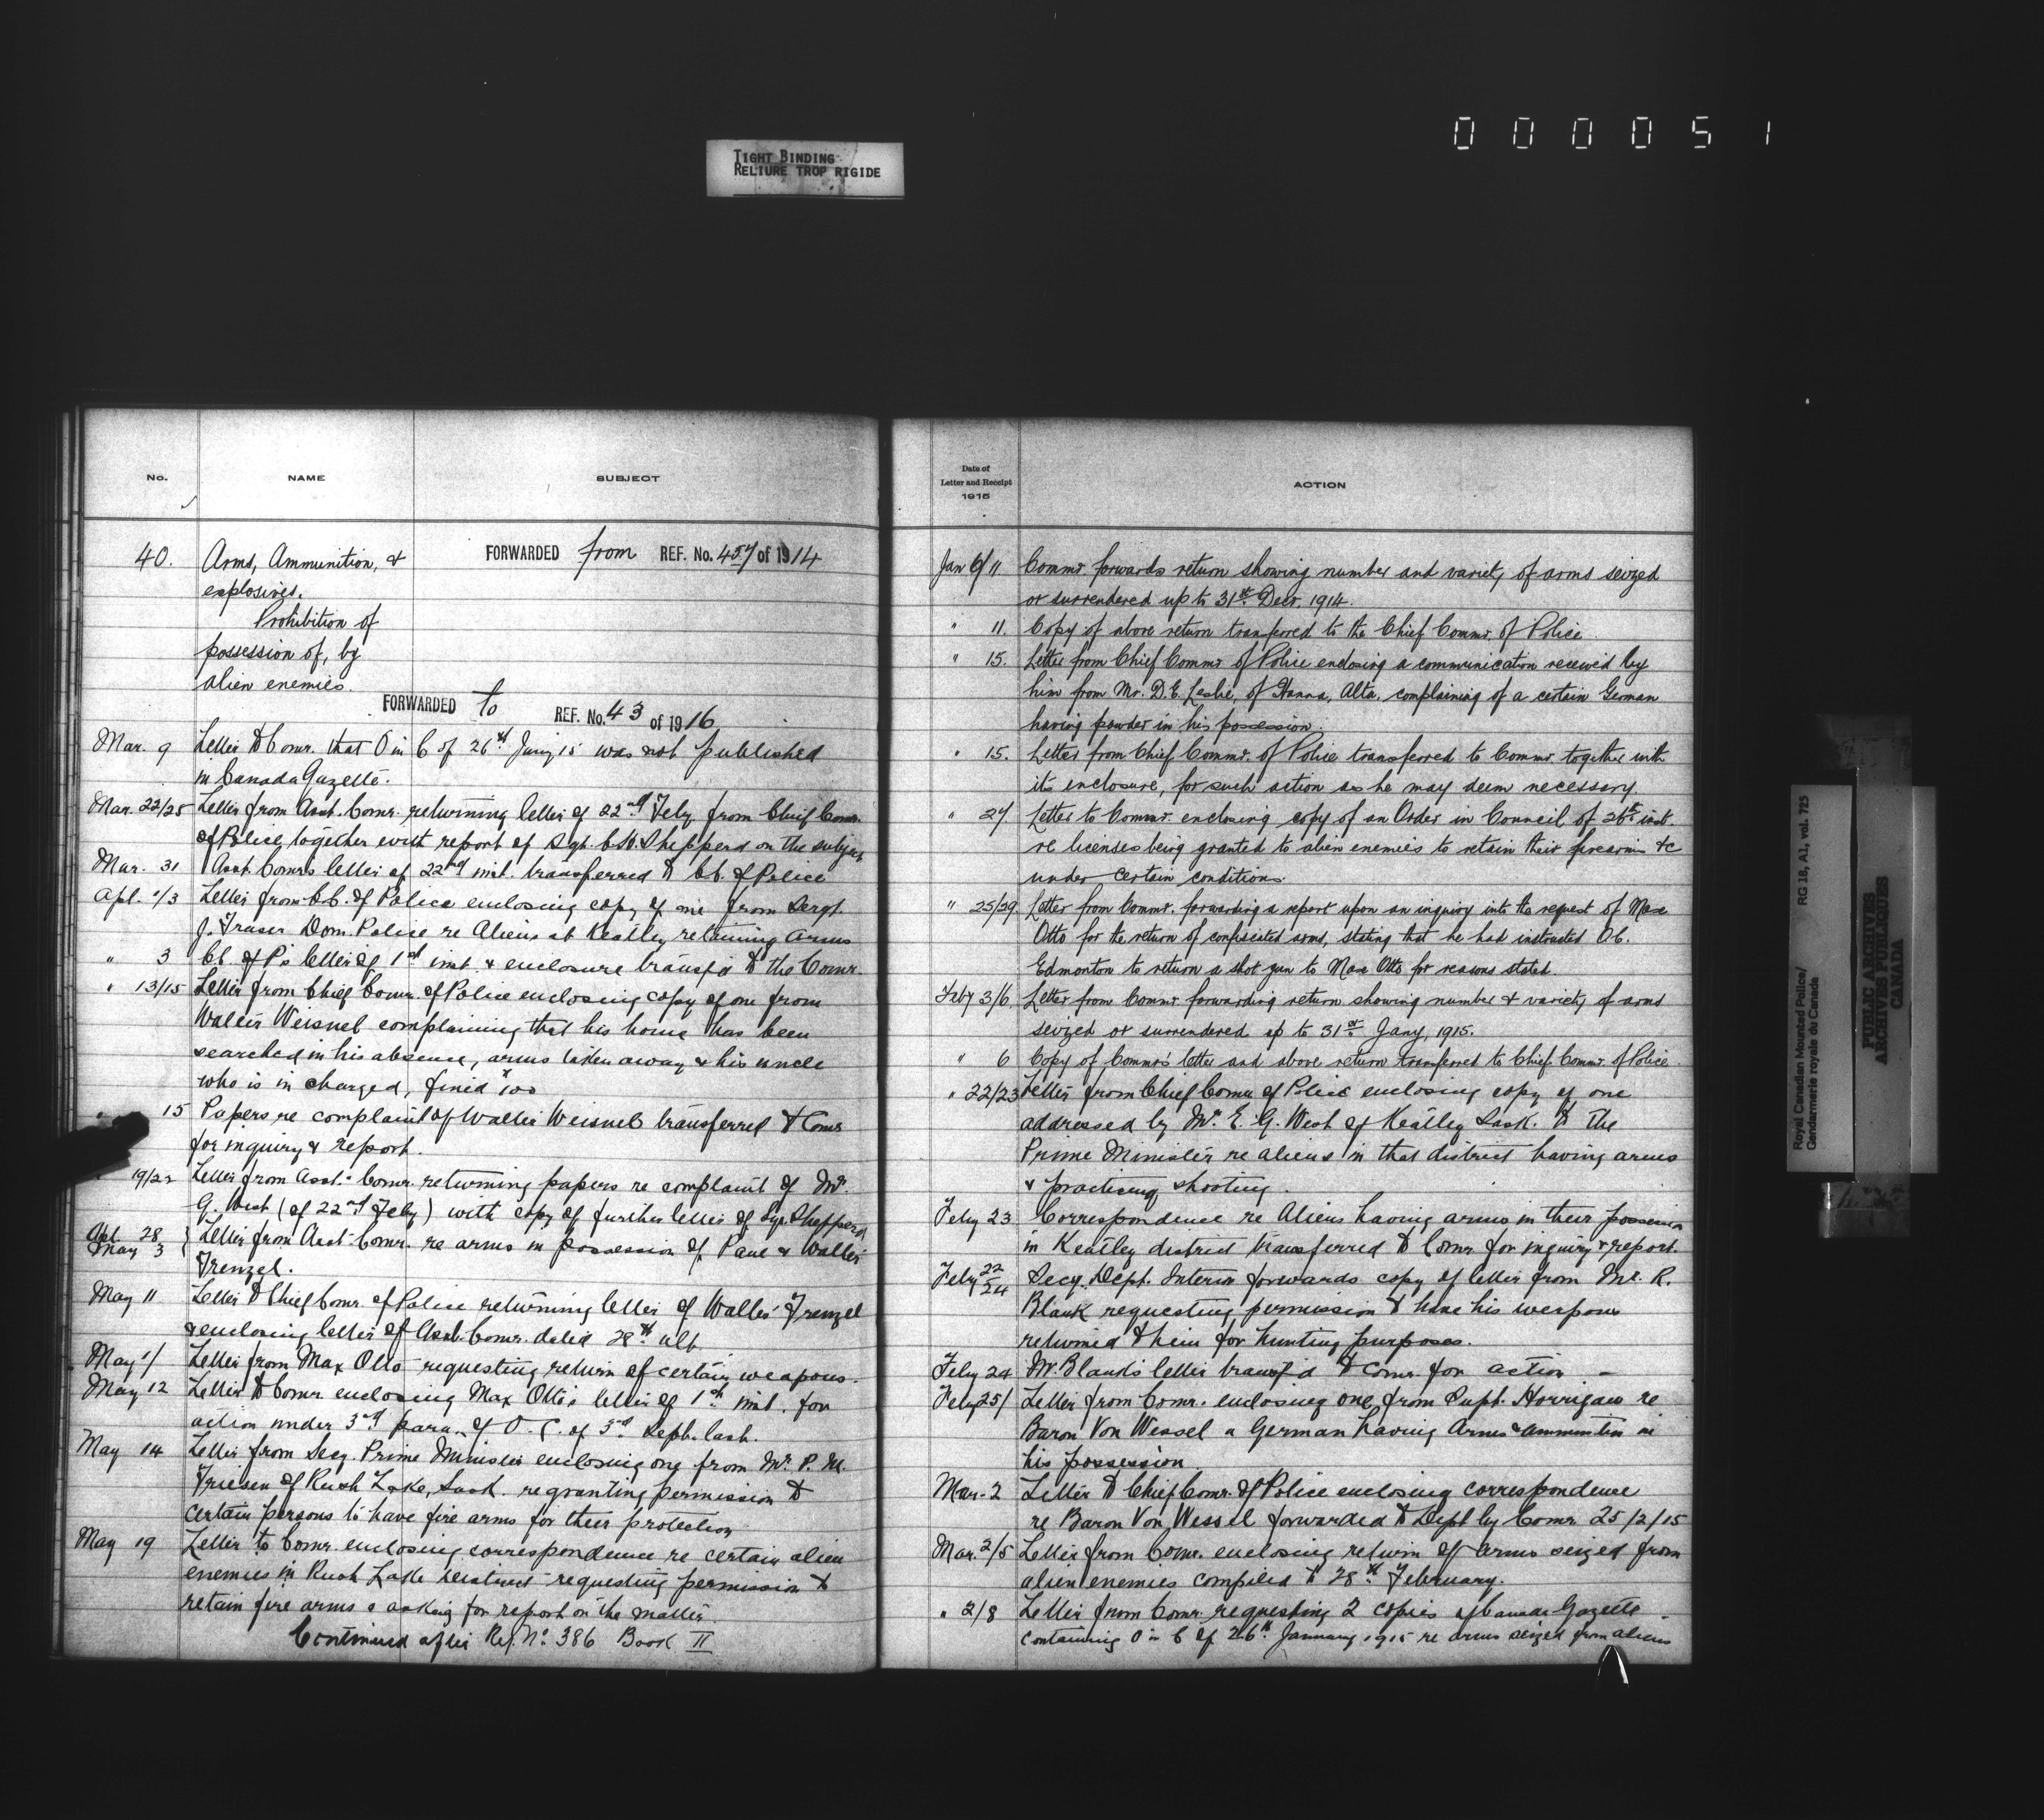 000051
TIGHT BINDING
RELIURE TROP RIGIDE
No.
NAME
SUBJECT
40.
Arms, Ammunition, &
explosives.
Prohibition of
possession of, by
alien enemies.
FORWARDED from REF. No. 457 of 1914
FORWARDED to REF. No. 43 of 1916
Mar. 9 Letter to Comr. that O in C of 26th Jany 15 was not published
in Canada Gazette.
Mar. 22/25 Letter from Asst. Comr. returning letter of 22nd Feby. from Chief Comr.
of Police, together with report of Sgt. Sheppard on the subject
Mar. 31 Asst. Comr's letter of 22nd inst. transferred to CC. of Police
Apl. 1/3 Letter from CC. of Police enclosing copy of one from Sergt.
J. Fraser Dom. Police re Aliens at Keatley retaining arms
" 3 CC. of P's letter of 1st inst. & enclosure transf'd to the Comr.
" 13/15 Letter from Chief Comr. of Police enclosing copy of one from
Walter Weisneb complaining that his home has been
searched in his absence, arms taken away & his uncle
who is in charged, fined $100
" 15 Papers re complaint of Walter Weisneb transferred to Comr
for inquiry & report.
19/22 Letter from Asst. Comr. returning papers re complaint of Mr.
G. West (of 22nd Feby) with copy of further letter of Sgt. Sheppard
Apl. 28
May 3 } Letter from Asst. Comr. re arms in possession of Paul & Walter
Frenzel.
May 11 Letter to Chief Comr. of Police returning letter of Walter Frenzel
& enclosing letter of Asst. Comr. dated 28th ult.
May 1/ Letter from Max Otto requesting return of certain weapons.
May 12 Letter to Comr enclosing Max Otto's letter of 1st inst. for
action under 3rd para. of O.C. of 3rd Sept. last.
May 14 Letter from Secy. Prime Minister enclosing one from Mr. P. M.
Friesen of Rush Lake, Sask. re granting permission to
certain persons to have fire arms for their protection
May 19 Letter to Comr. enclosing correspondence re certain alien
enemies in Rush Lake district requesting permission to
retain fire arms & asking for report on the matter.
Continued after Ref. No. 386 Book II
Date of
Letter and Receipt
1915
ACTION
Jan 6/11 Commr. forwards return showing number and variety of arms seized
or surrendered up to 31st Decr. 1914.
" 11. Copy of above return transferred to the Chief Commr. of Police.
" 15. Letter from Chief Commr of Police enclosing a communication received by
him from Mr. D. E. Leslie, of Hanna, Alta. complaining of a certain German
having powder in his possession.
" 15. Letter from Chief Commr. of Police transferred to Commr. together with
its enclosure, for such action as he may deem necessary.
" 27 Letter to Commr. enclosing copy of an Order in Council of 26th inst.
re licenses being granted to alien enemies to retain their firearms &c
under certain conditions.
" 25/29. Letter from Commr. forwarding a report upon an inquiry into the request of Max
Otto for the return of confiscated arms, stating that he had instructed O.C.
Edmonton to return a shot gun to Max Otto for reasons stated.
Feby 3/6. Letter from Commr forwarding return showing number & variety of arms
seized or surrendered up to 31st Jany, 1915.
" 6 Copy of Commr's letter and above return transferred to Chief Commr. of Police.
" 22/23 Letter from Chief Comr. of Police enclosing copy of one
addressed by Mr. E. G. West of Keatley Sask. to the
Prime Minister re aliens in that district having arms
& practicing shooting.
Feby 23 Correspondence re Aliens having arms in their possession
in Keatley district transferred to Comr for inquiry & report.
Feby 22/24 Secy. Dept. Interior forwards copy of letter from Mr. R.
Blauk requesting permission to have his weapons
returned to him for hunting purposes.
Feby 24 Mr. Blauk's letter transf'd to Comr. for action -
Feby 25/ Letter from Comr. enclosing one from Supt. Horrigan re
Baron Von Wessel a German having Arms & ammunition in
his possession.
Mar. 2 Letter to Chief Comr. of Police enclosing correspondence
re Baron Von Wessel forwarded to Dept by Comr. 25/2/15
Mar. 2/5 Letter from Comr. enclosing return of arms seized from
alien enemies compiled to 28th February.
" 2/8 Letter from Comr. requesting 2 copies of Canada Gazette
containing O in C of 26th January 1915 re arms seized from aliens
Royal Canadian Mounted Police/
Gendarmerie royale du Canada
RG 18, A1, vol. 725
PUBLIC ARCHIVES
ARCHIVES PUBLIQUES
CANADA